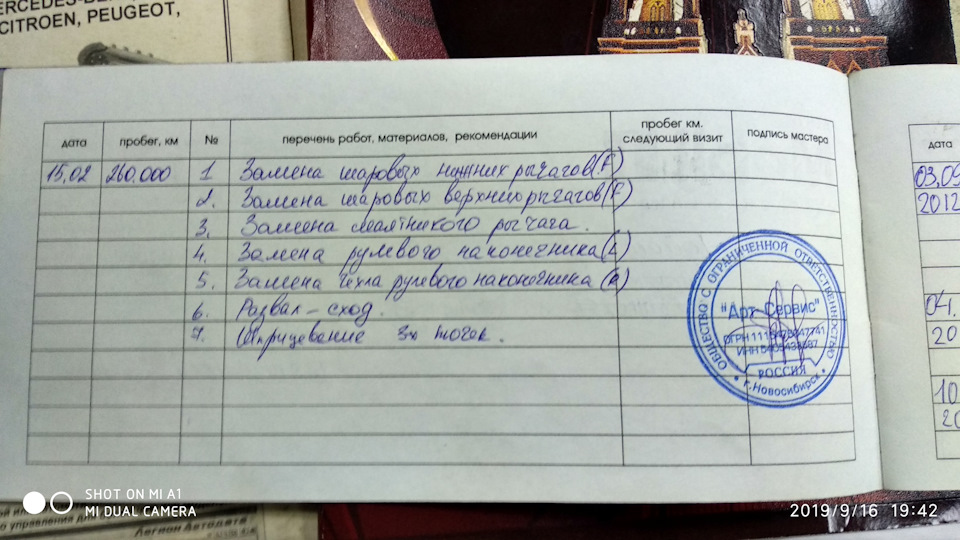 CITROEN, PEUGEOT,
дата пробег, км № перечень работ, материалов, рекомендации пробег км. следующий визит подпись мастера
15.02 260.000 1 Замена шаровых нижних рычагов (F)
2. Замена шаровых верхних рычагов (F)
3. Замена маятникого рычага.
4. Замена рулевого наконечника (L)
5. Замена чехла рулевого наконечника (R)
6. Развал-сход.
7. Шприцевание 3х точек.
ОБЩЕСТВО С ОГРАНИЧЕННОЙ ОТВЕТСТВЕННОСТЬЮ
"Арт-Сервис"
РОССИЯ
г. Новосибирск
дата
03.09
2012
04.
20
10
20
управление для
Легион Автодата
SHOT ON MI A1
MI DUAL CAMERA
2019/9/16 19:42